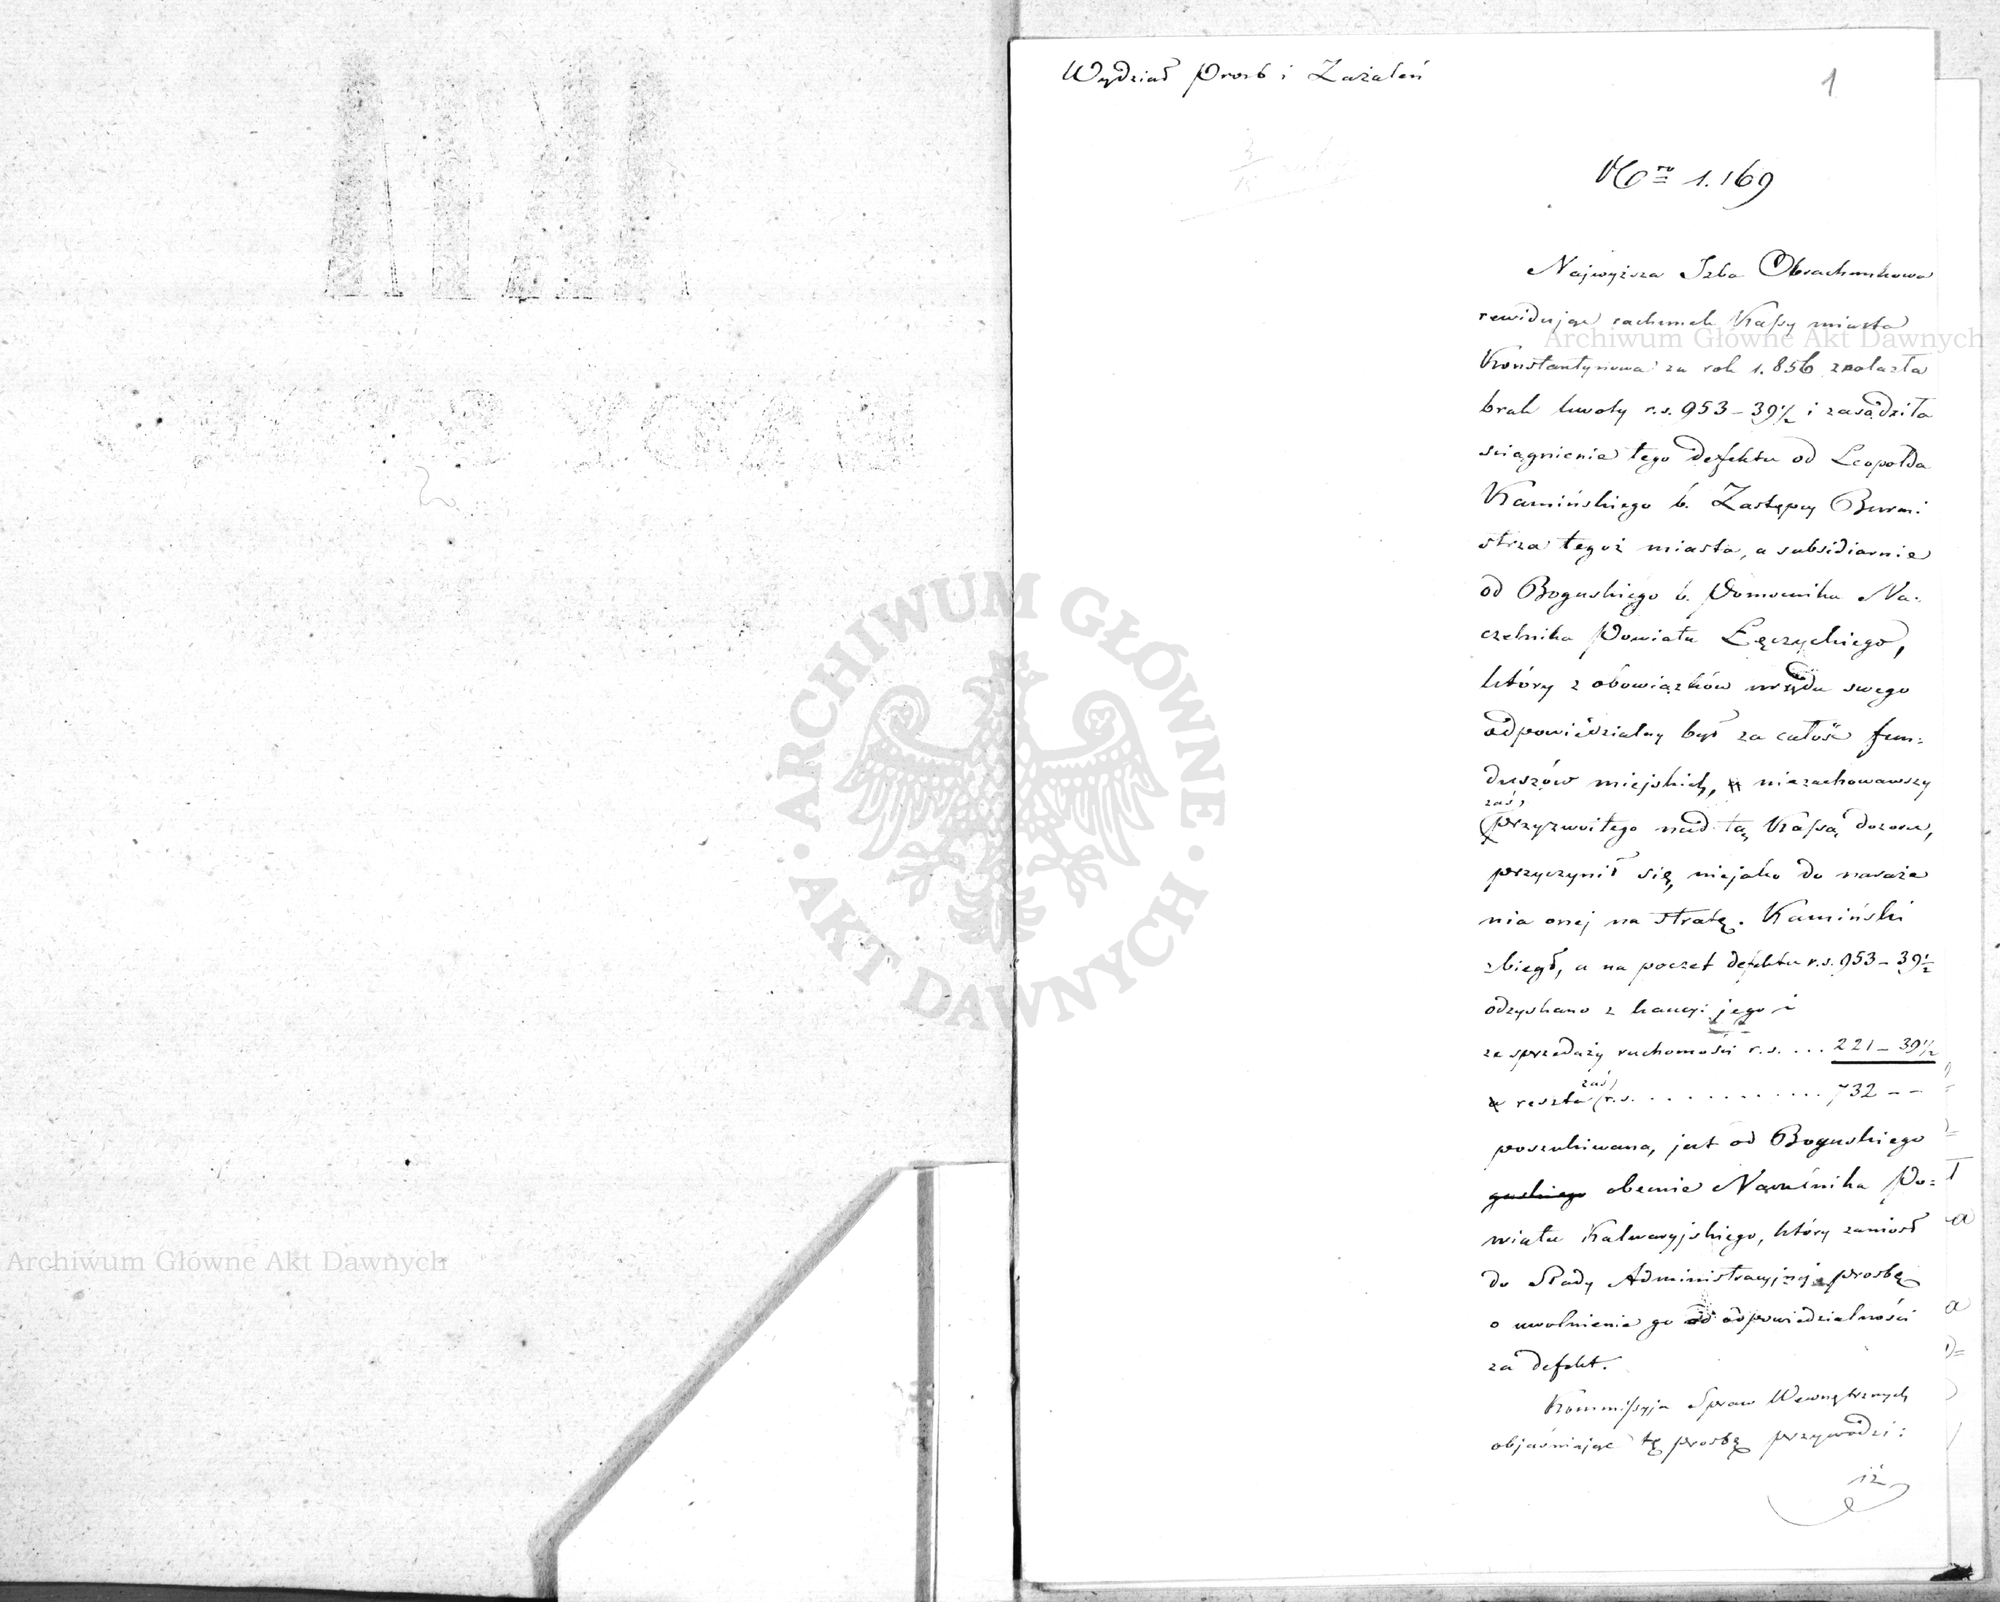 Wydział Prosb i Zażaleń
1
Nro 1.169
Najwyższa Izba Obrachunkowa
rewidując rachunek Kassy miasta
Konstantynowa za rok 1.856 znalazła
brak kwoty r.s. 953 – 39½ i zasądziła
sciągnienie tego defektu od Leopolda
Kamińskiego b. Zastępcy Burmi
strza tegoż miasta, a subsidiarnie
od Boguskiego b. Pomocnika Na:
czelnika Powiatu Łęczyckiego,
który z obowiązków urzędu swego
odpowiedzialny był za całość fun:
duszów miejskich, niezachowawszy
zaś
przyzwoitego nad tą Kassą dozoru,
przyczynił się niejako do naraże
nia onej na stratę. Kamiński
zbiegł, a na poczet defektu r.s. 953 – 39½
odzyskano z kaucyi jego i
ze sprzedaży ruchomości r.s. .... 221 – 39½
zaś
reszta r.s. ............ 732 – –
poszukiwana jest od Boguskiego
guskiego obecnie Naczelnika Po=
wiatu Kalwaryjskiego, który zaniosł
do Rady Administracyjnej prosbę
o uwolnienie go od odpowiedzialności
za defekt.
Kommissyja Spraw Wewnętrznych
objaśniając tę prosbę przywodzi:
iż
Archiwum Główne Akt Dawnych
ARCHIWUM GŁÓWNE
· AKT DAWNYCH ·
Archiwum Główne Akt Dawnych